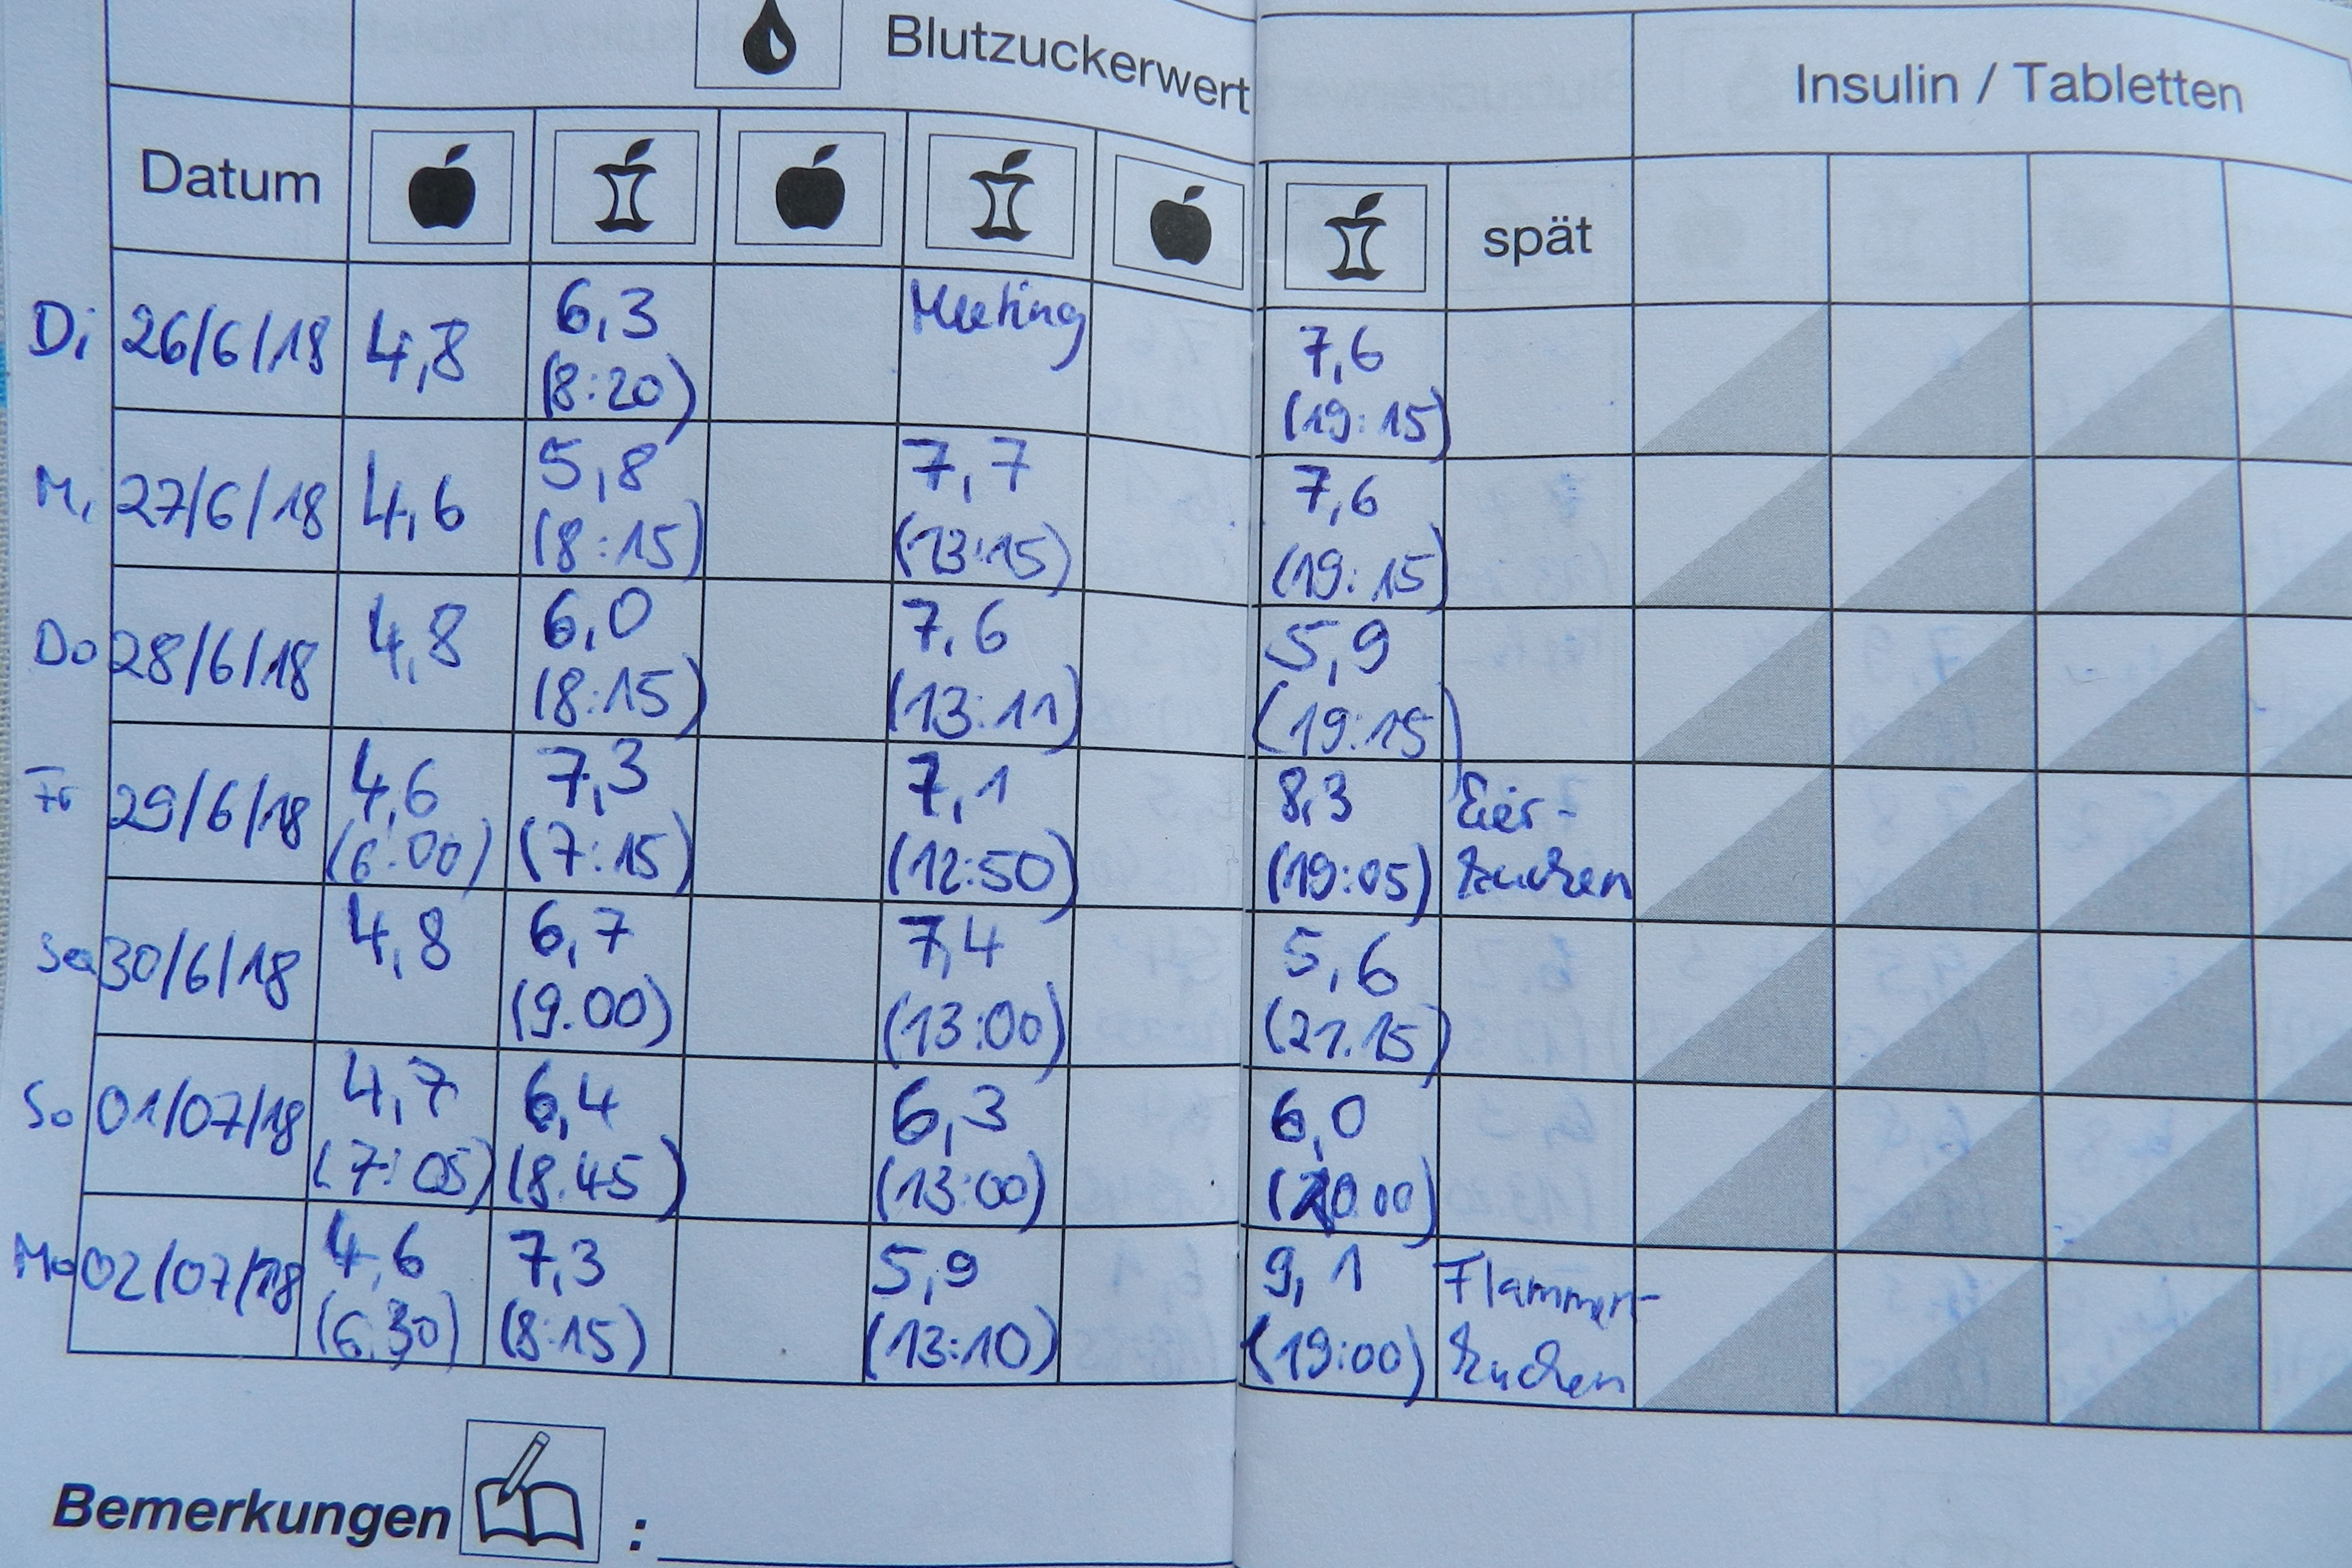 Blutzuckerwert
Insulin / Tabletten
Datum
spät
Di 26/6/18 4,8 6,3 Meeting 7,6
(8:20) (19:15)
Mi 27/6/18 4,6 5,8 7,7 7,6
(8:15) (13:15) (19:15)
Do 28/6/18 4,8 6,0 7,6 5,9
(8:15) (13:11) (19:15)
Fr 29/6/18 4,6 7,3 7,1 8,3 Eier-
(6:00) (7:15) (12:50) (19:05) kuchen
Sa 30/6/18 4,8 6,7 7,4 5,6
(9.00) (13:00) (21.15)
So 01/07/18 4,7 6,4 6,3 6,0
(7:05) (8.45) (13:00) (20.00)
Mo 02/07/18 4,6 7,3 5,9 9,1 Flamment-
(6.30) (8:15) (13:10) (19:00) kuchen
Bemerkungen :